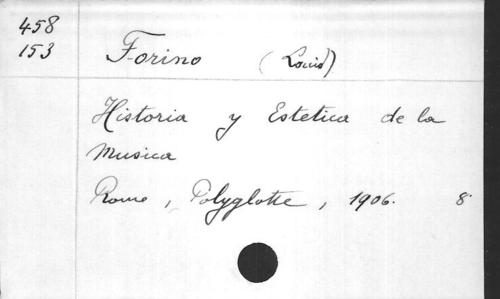 458
153
Forino (Louis)
Historia y Estetica de la
Musica
Rome, Polyglotte, 1906. 8